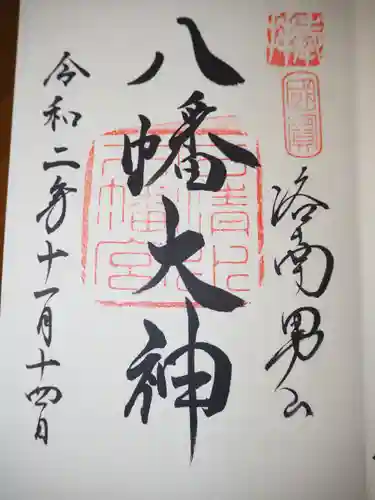 洛南男山
八幡大神
令和二年十一月十四日
国宝
石清水八幡宮